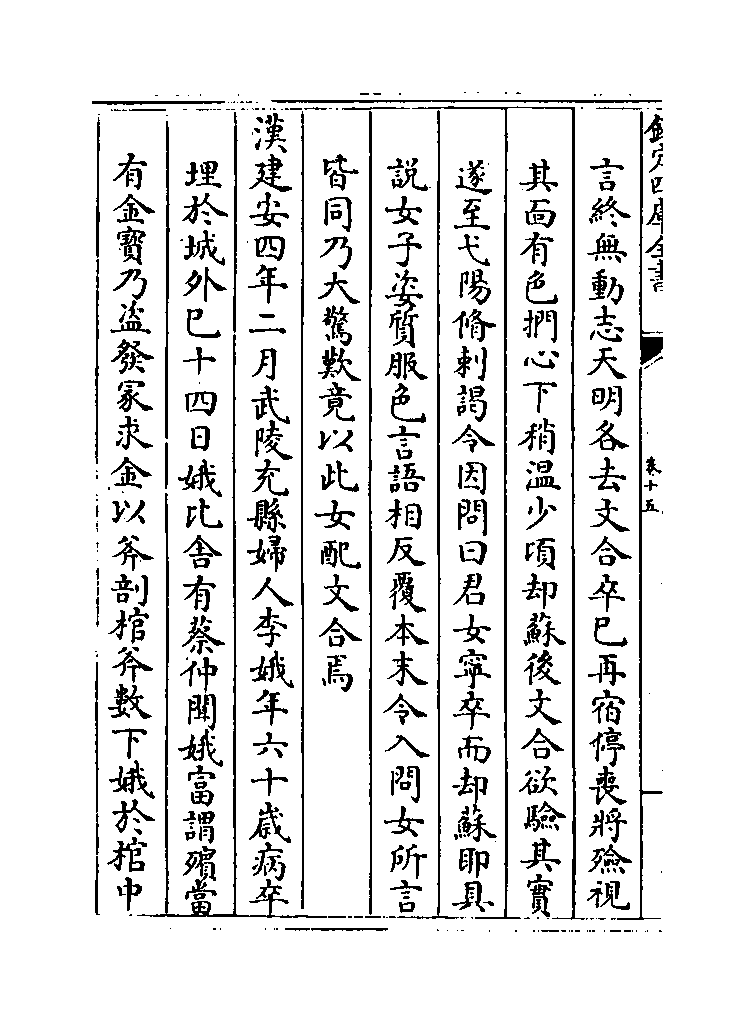 欽定四庫全書
卷十五
言終無動志天明各去文合卒已再宿停喪將殮視
其面有色捫心下稍温少頃却蘇後文合欲驗其實
遂至弋陽脩刺謁令因問曰君女寧卒而却蘇耶具
説女子姿質服色言語相反覆本末令入問女所言
皆同乃大驚歎竟以此女配文合焉
漢建安四年二月武陵充縣婦人李娥年六十歲病卒
埋於城外已十四日娥比舎有蔡仲聞娥富謂殯當
有金寶乃盜發冢求金以斧剖棺斧數下娥於棺中